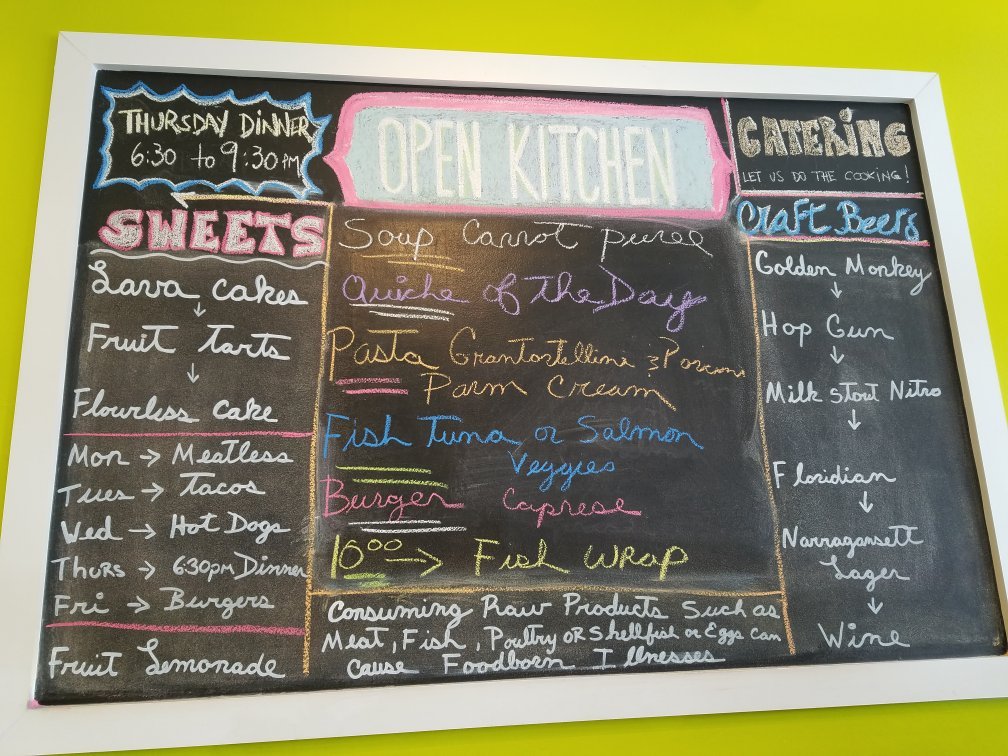 THURSDAY DINNER
6:30 to 9:30 PM
SWEETS
Lava cakes
↓
Fruit tarts
↓
Flourless cake
Mon → Meatless
Tues → Tacos
Wed → Hot Dogs
Thurs → 6:30pm Dinner
Fri → Burgers
Fruit Lemonade
OPEN KITCHEN
Soup Carrot puree
Quiche of the Day
Pasta
Parm Cream
Fish Tuna or Salmon
Veggies
Burger Caprese
10⁰⁰ → Fish WRAP
Consuming Raw Products Such as
Meat, Fish, Poultry OR Shellfish or Eggs can
Cause Foodborn Illnesses
CATERING
LET US DO THE COOKING!
Craft Beers
Golden Monkey
↓
Hop Gun
↓
Milk Stout Nitro
↓
Floridian
↓
Narragansett
Lager
↓
Wine